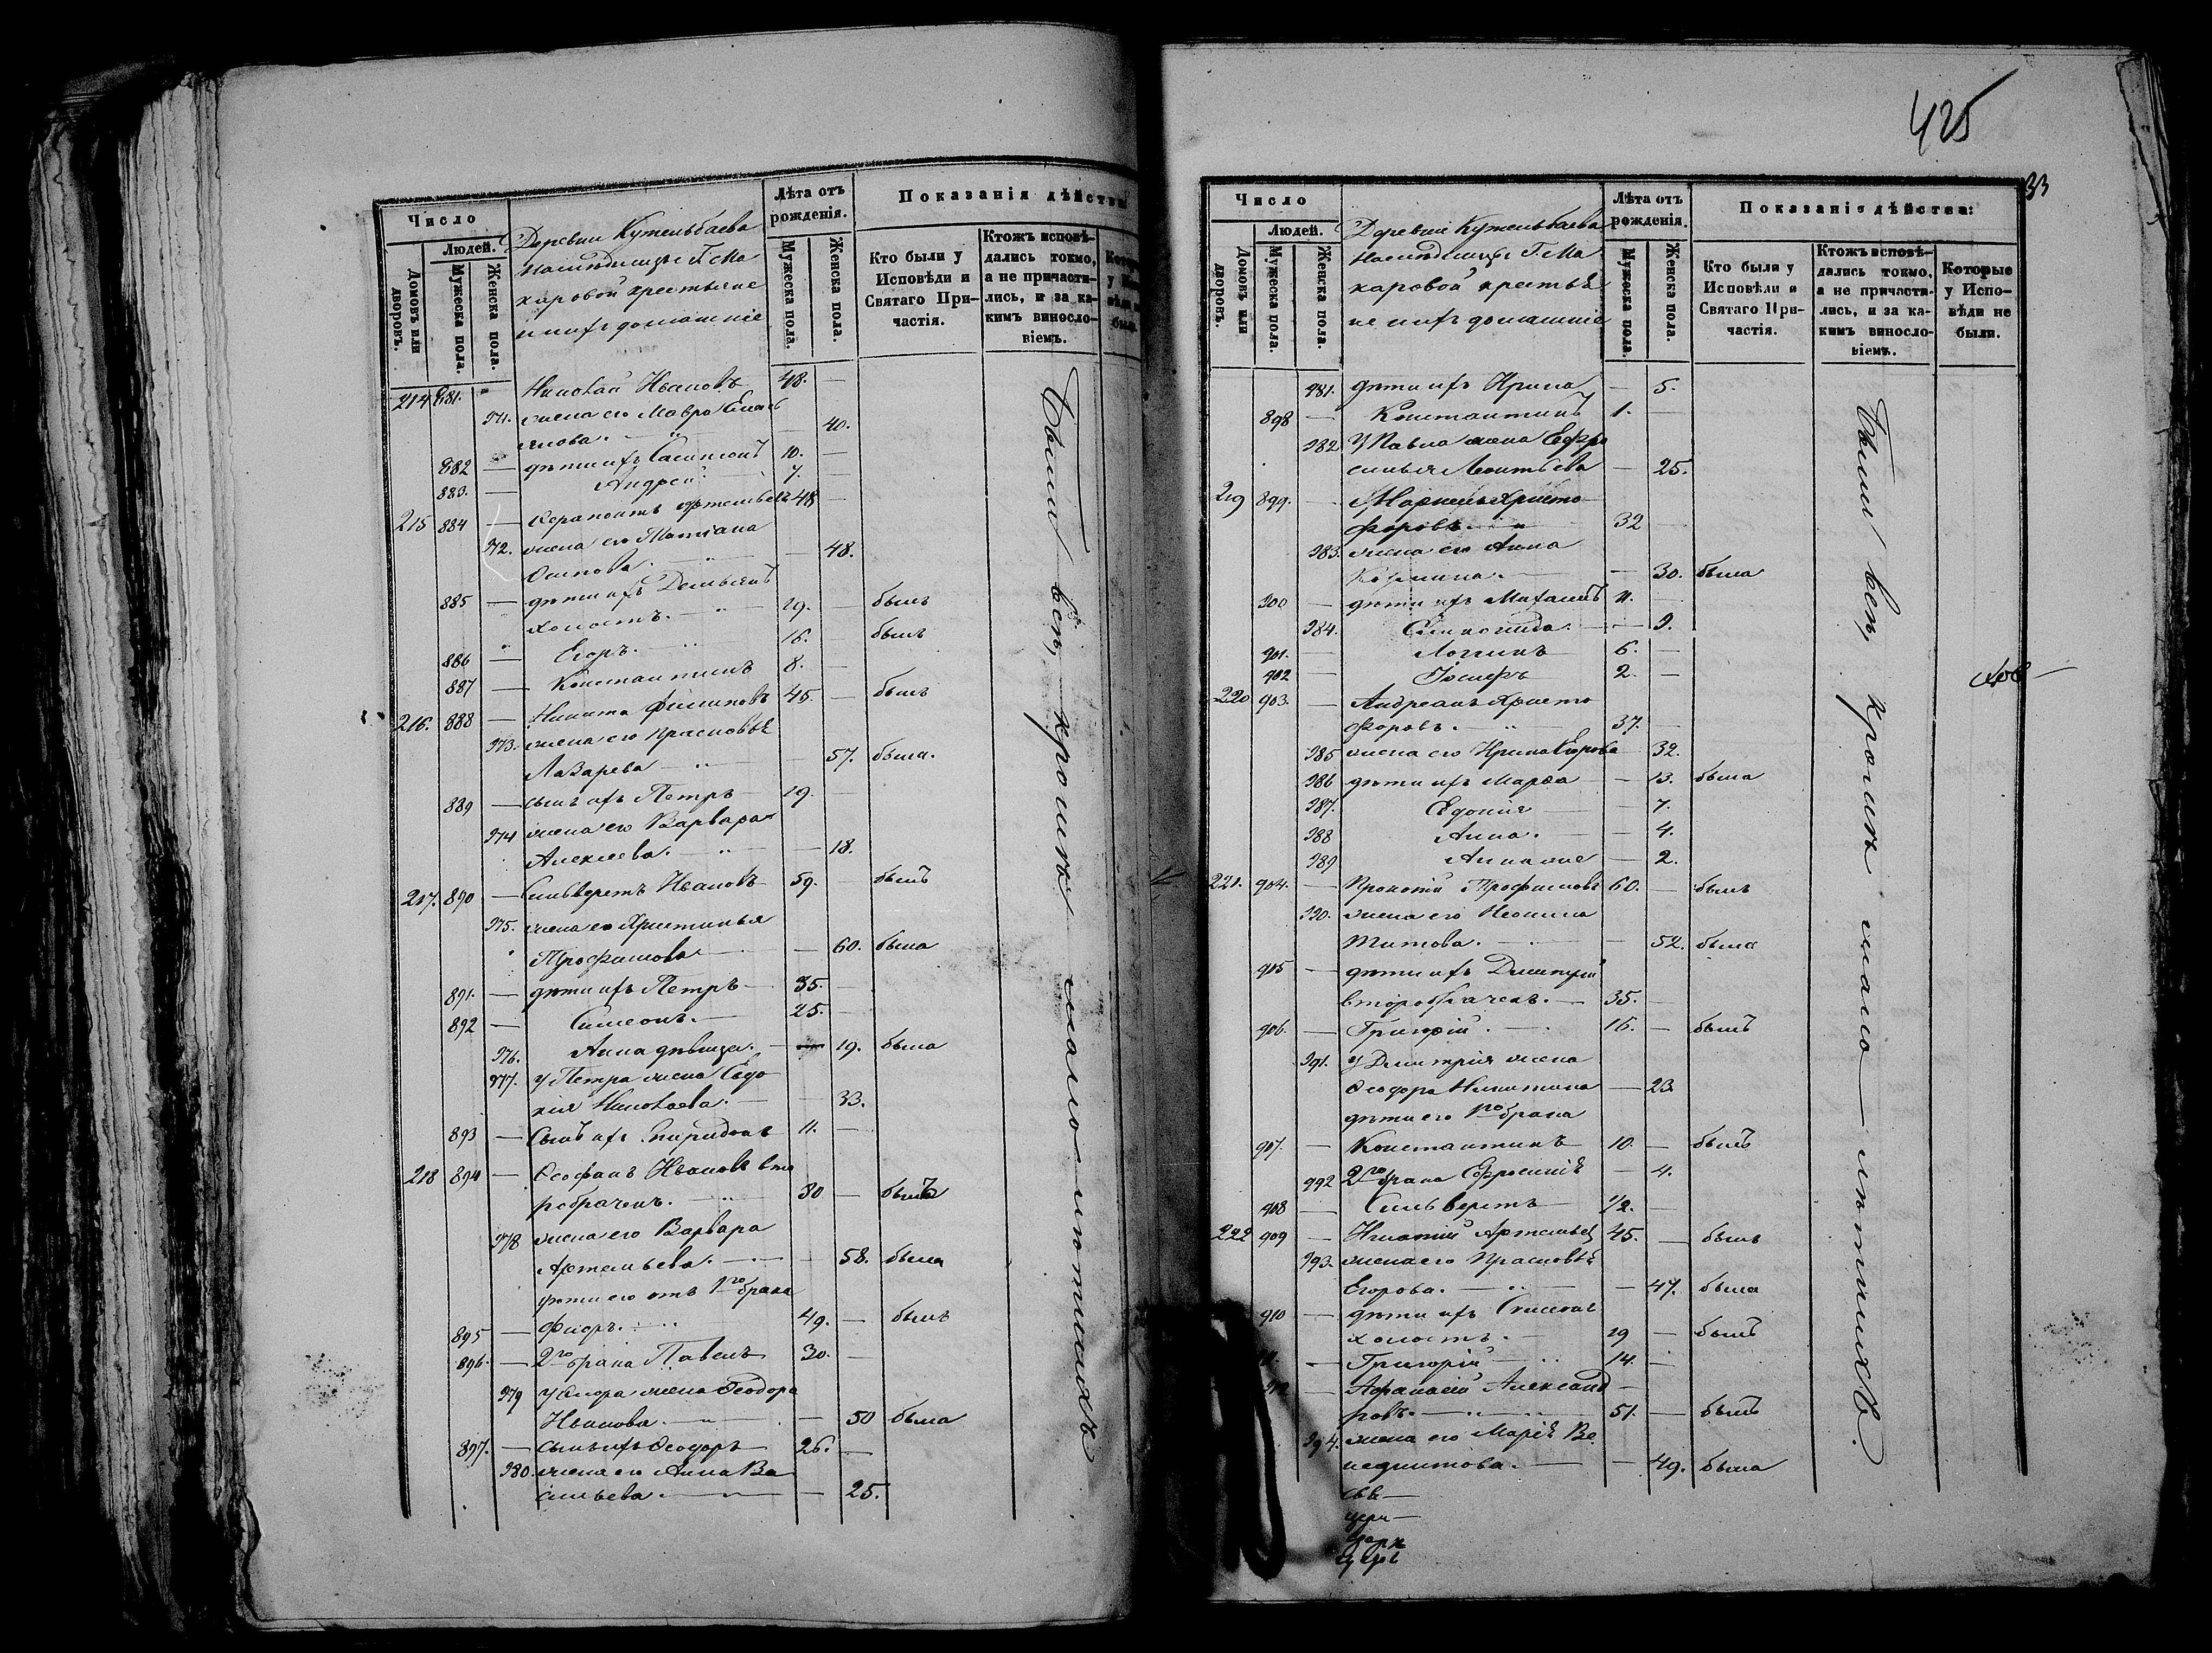 Число
Людей.
Домовъ или дворовъ.
Мужеска пола.
Женска пола.
Деревни Кутельбаева
наслѣдницы Г. Ма
каровой крестьяне
и ихъ домашніе
Лѣта отъ рожденія.
Мужеска пола.
Женска пола.
Показанія дѣйства
Кто были у Исповѣди и Святаго Причастія.
Ктожъ исповѣдались токмо, а не причастились, и за какимъ винословіемъ.
214 881. Николай Ивановъ 48. —
971. жена его Мавра
40.
882 — дѣти ихъ Сампсонъ 10. —
883. — Андрей 7. —
215 884 — Ферапонтъ Артемьевъ 48 —
972. жена его Татіана
Осипова. — 48.
885 — дѣти ихъ Демьянъ
холостъ. 19. былъ
886 — Егоръ. 16. былъ
887 — Константинъ 8. —
216. 888 — Никита Филиповъ 45. — былъ
973. жена его Прасковья
Лазарева — 57. была.
889 — сынъ ихъ Петръ 19. —
974 жена его Варвара
Алексеева. — 18.
217. 890 — Сильверстъ Ивановъ 59. былъ
975. жена его Христинья
Трофимова — 60. была
891. — дѣти ихъ Петръ 35. —
892 — Симеонъ. 25. —
976. Анна дѣвица. — 19. была
977. у Петра жена Евдо
кія Николаева. — 33.
893 — Сынъ ихъ Спиридонъ 11. —
218 894 — Феофанъ Ивановъ вто
робраченъ. 80 — былъ
978 жена его Варвара
Артемьева. — 58. была
дѣти его отъ 1го брака
895 — Флоръ. 49. — былъ
896. — 2го брака Павелъ 30. —
979 у Флора жена Феодора
Иванова. — 50 была
897. — сынъ ихъ Феодоръ 26. —
980. жена его Анна Ва
сильева. — 25.
Были всѣ, кромѣ малолѣтнихъ
425
33
Число
Людей.
Домовъ или дворовъ.
Мужеска пола.
Женска пола.
Деревни Кутельбаева
наслѣдницы Г. Ма
каровой крестья
не и ихъ домашніе
Лѣта отъ рожденія.
Мужеска пола.
Женска пола.
Показанія дѣйства:
Кто были у Исповѣди и Святаго Причастія.
Ктожъ исповѣдались токмо, а не причастились, и за какимъ винословіемъ.
Которые у Исповѣди не были.
981. дѣти ихъ Ирина — 5.
898 — Константинъ 1. —
982 У Павла жена Ефро
синья Леонтьева — 25.
219 899. — Христо
форовъ 32
983. жена его Анна
— 30. была
900 — дѣти ихъ Михаилъ 11. —
984. — 9.
901. — Логинъ 6. —
902 — Іосифъ 2. —
220 903. — Андреанъ Христо
форовъ. 37. —
985 жена его Ирина Егорова 32.
986 дѣти ихъ Марѳа — 13. была
987. Евдокія — 7.
988 Анна. — 4.
989 Анна же — 2.
221. 904. — Прокопій Трофимовъ 60. — былъ
990. жена его Неонила
Титова. — 52. была
905 — дѣти ихъ Димитрій
второбраченъ. — 35. —
906. — Григорій. 16. — былъ
991. у Димитрія жена
Феодора Никитина — 23
дѣти его 1го брака
907. — Константинъ 10. — былъ
992 2го брака Ефросинія — 4.
908 — Сильверстъ 1/2. —
222 909 — Игнатій Артемьев 45. — былъ
993. жена его Прасковья
Егорова. — 47. была
910 — дѣти ихъ Симеонъ
холостъ. — 19 — былъ
— Григорій 14. —
— Афанасій Александ
ровъ. 51. — былъ
994. жена его Марія Ве
недиктова. — 49. была
Были всѣ, кромѣ малолѣтнихъ.